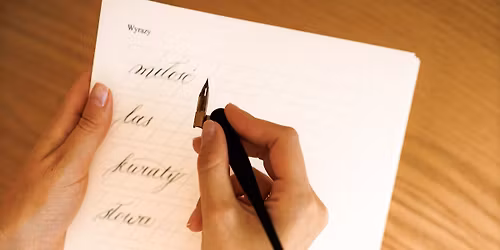 Wyrazy
miłość
las
kwiaty
słowa